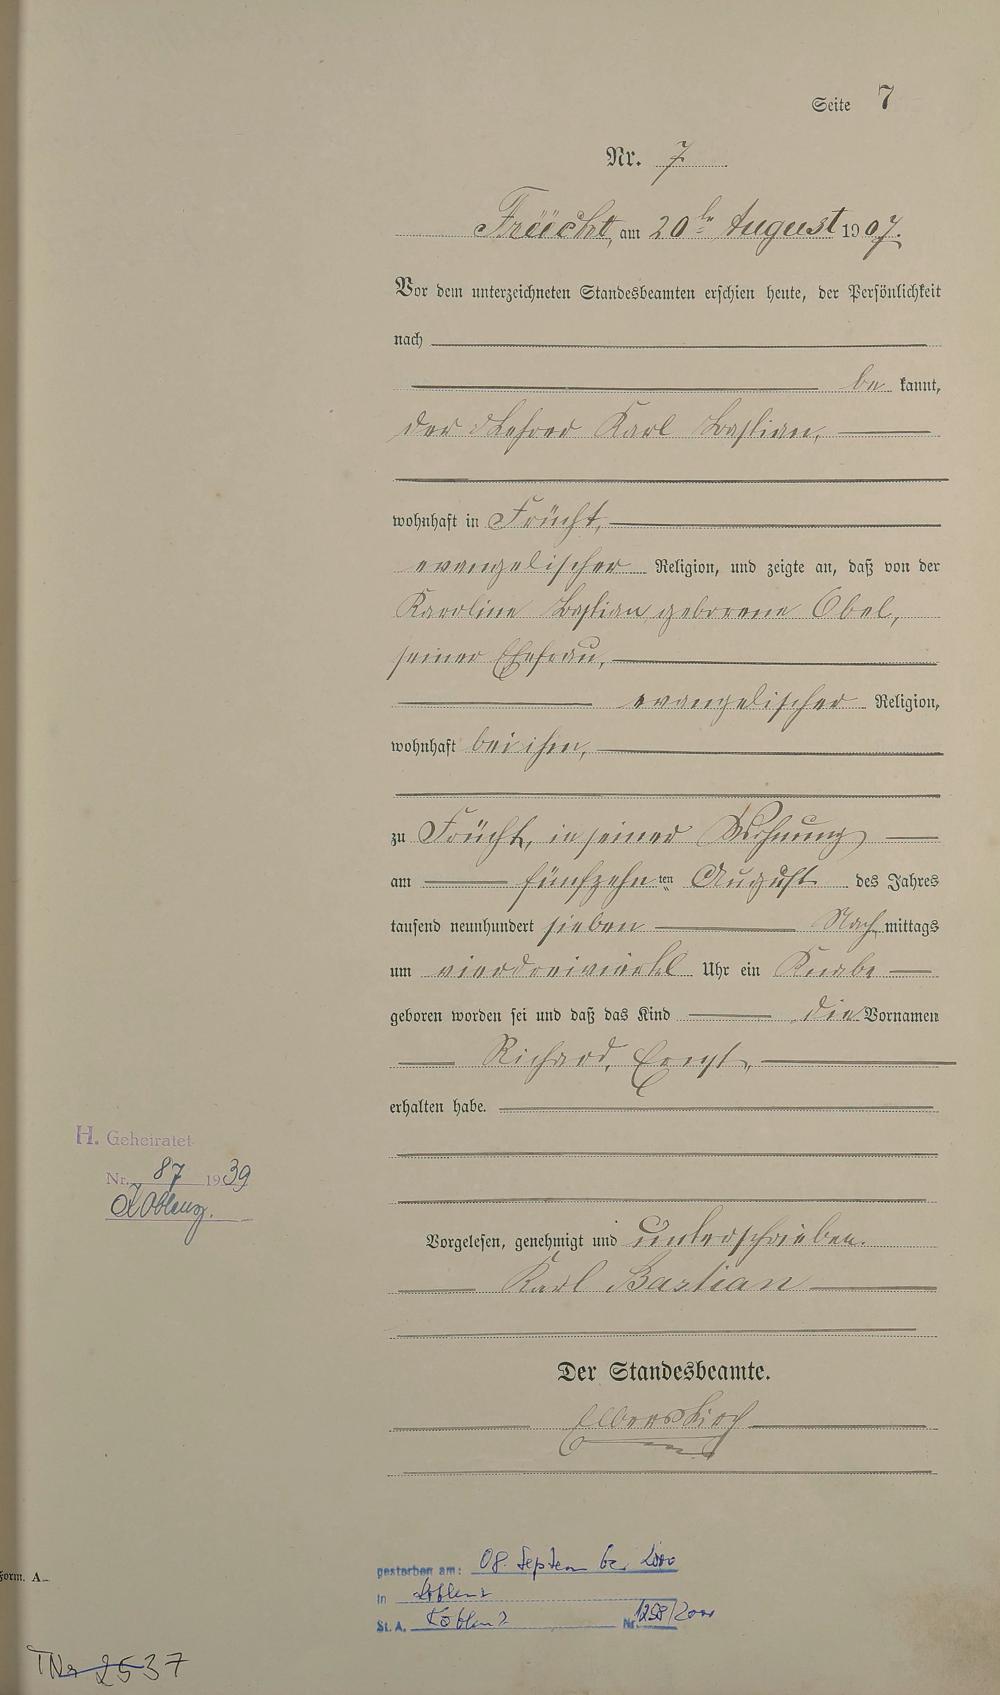 Seite 7
Nr. 7
Früecht, am 20ten August 1907.
Vor dem unterzeichneten Standesbeamten erschien heute, der Persönlichkeit
nach
be kannt,
der Lehrer Karl Bastian,
wohnhaft in Frücht,
evangelischer Religion, und zeigte an, daß von der
Karoline Bastian geborene Obel,
seiner Ehefrau,
evangelischer Religion,
wohnhaft bei ihm,
zu Frücht, in seiner Wohnung
am fünfzehn ten August des Jahres
tausend neunhundert sieben Nach mittags
um vierdreiviertel Uhr ein Knabe
geboren worden sei und daß das Kind die Vornamen
Richard, Ernst,
erhalten habe.
H. Geheiratet
Nr. 87 1939
Koblenz.
Vorgelesen, genehmigt und unterschrieben.
Karl Bastian
Der Standesbeamte.
Elberskirch
gestorben am: 08. September 2000
in Koblenz
St. A. Koblenz Nr. 1258/2000
Form. A.
TNr 2537